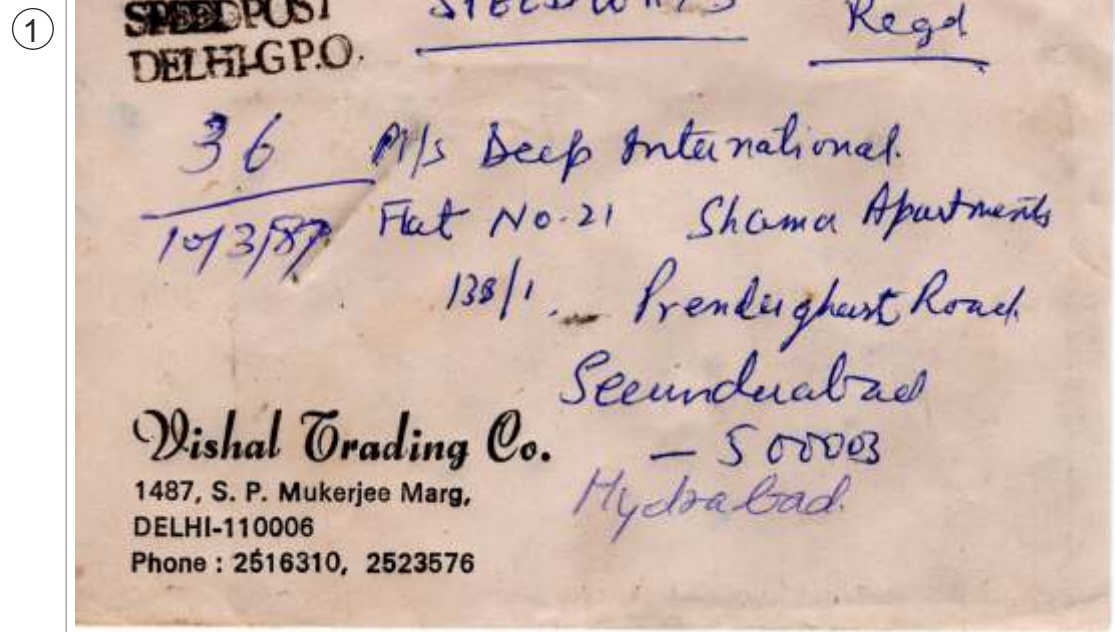 ①
SPEEDPOST
DELHI-G.P.O.
Regd
36
10/3/87
M/s Deep International.
Flat No. 21 Shama Apartments
138/1. Prenderghast Road
Secunderabad
— 500003
Hydrabad.
Vishal Trading Co.
1487, S. P. Mukerjee Marg,
DELHI-110006
Phone : 2516310, 2523576